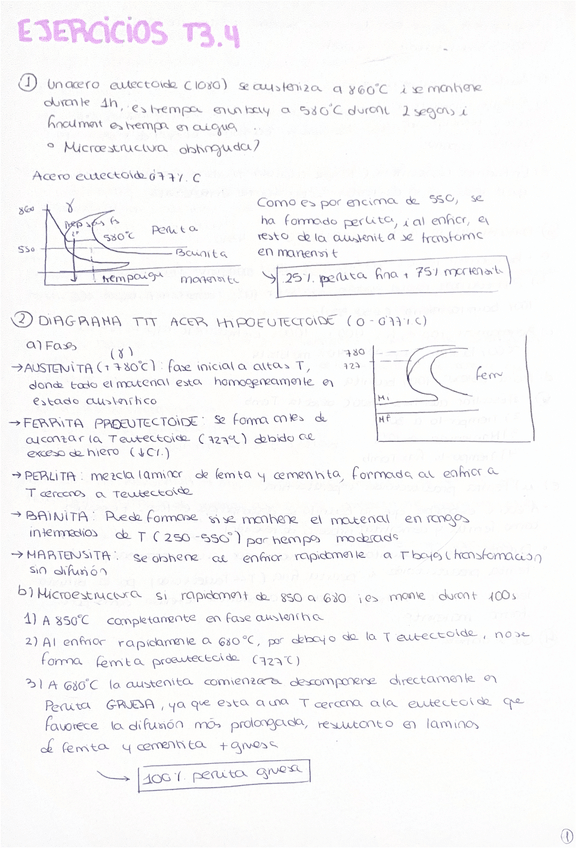 EJERCICIOS T3.4
① Un acero eutectoide (1080) se austeniza a 860°C i se mantiene
durante 1h, es trempa en un bany a 580°C durant 2 segons i
finalment es trempa en aigua
° Microestructura obtinguda?
Acero eutectoide 0'77% C
860
γ
580°C
Perlita
550
Bainita
trempaigu
martensiti
Como es por encima de 550, se
ha formado perlita, i al enfriar, el
resto de la austenita se transforma
en martensit
↳ 25% perlita fina + 75% martensit
② DIAGRAMA TTT ACER HIPOEUTECTOIDE (0-0'77% C)
a) Fases
(γ)
→ AUSTENITA (+780°C): fase inicial a altas T,
donde todo el material esta homogeneamente en
estado austenitico
→ FERRITA PROEUTECTOIDE: se forma antes de
alcanzar la T eutectoide (727°C) debido al
exceso de hierro (↓C%)
780
727
ferri
Mi
Mf
→ PERLITA: mezcla laminar de ferrita y cementita, formada al enfriar a
T cercanas a T eutectoide
→ BAINITA: Puede formarse si se mantiene el material en rangos
intermedios de T (250-550°) por tiempos moderados
→ MARTENSITA: se obtiene al enfriar rapidamente a T bajas (transformacion
sin difusión)
b) Microestructura si rapidament de 850 a 680 i es mante durant 100s
1) A 850°C completamente en fase austenitica
2) Al enfriar rapidamente a 680°C, por debajo de la T eutectoide, no se
forma ferrita proeutectoide (727°C)
3) A 680°C la austenita comienza a descomponerse directamente en
Perlita GRUESA, ya que esta a una T cercana a la eutectoide que
favorece la difusión más prolongada, resultanto en laminas
de ferrita y cementita + gruesa
→ 100% perlita gruesa
1